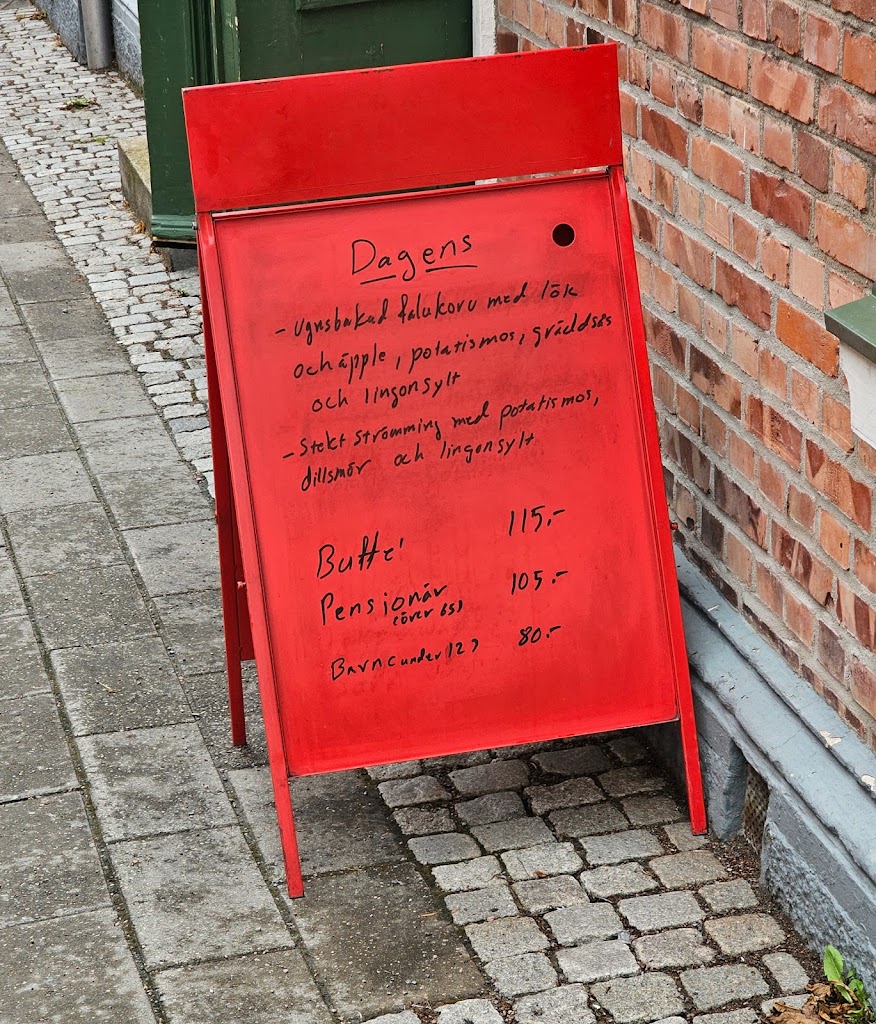 Dagens
- Ugnsbakad falukorv med lök
och äpple, potatismos, gräddsås
och lingonsylt
- Stekt Strömming med potatismos,
dillsmör och lingonsylt
Buffé 115,-
Pensionär 105,-
(över 65)
Barn (under 12) 80,-